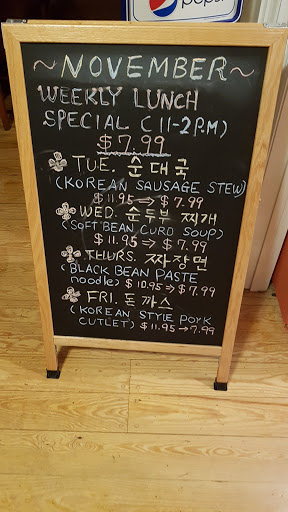 pepsi
~ NOVEMBER ~
WEEKLY LUNCH
SPECIAL (11-2P.M)
$7.99
TUE. 순대국
(KOREAN SAUSAGE STEW)
$11.95 ⇒ $7.99
WED. 순두부 찌개
(SOFT BEAN CURD SOUP)
$11.95 ⇒ $7.99
THURS. 짜장면
(BLACK BEAN PASTE
noodle) $10.95 ⇒ $7.99
FRI. 돈까스
(KOREAN STYLE PORK
CUTLET) $11.95 → 7.99